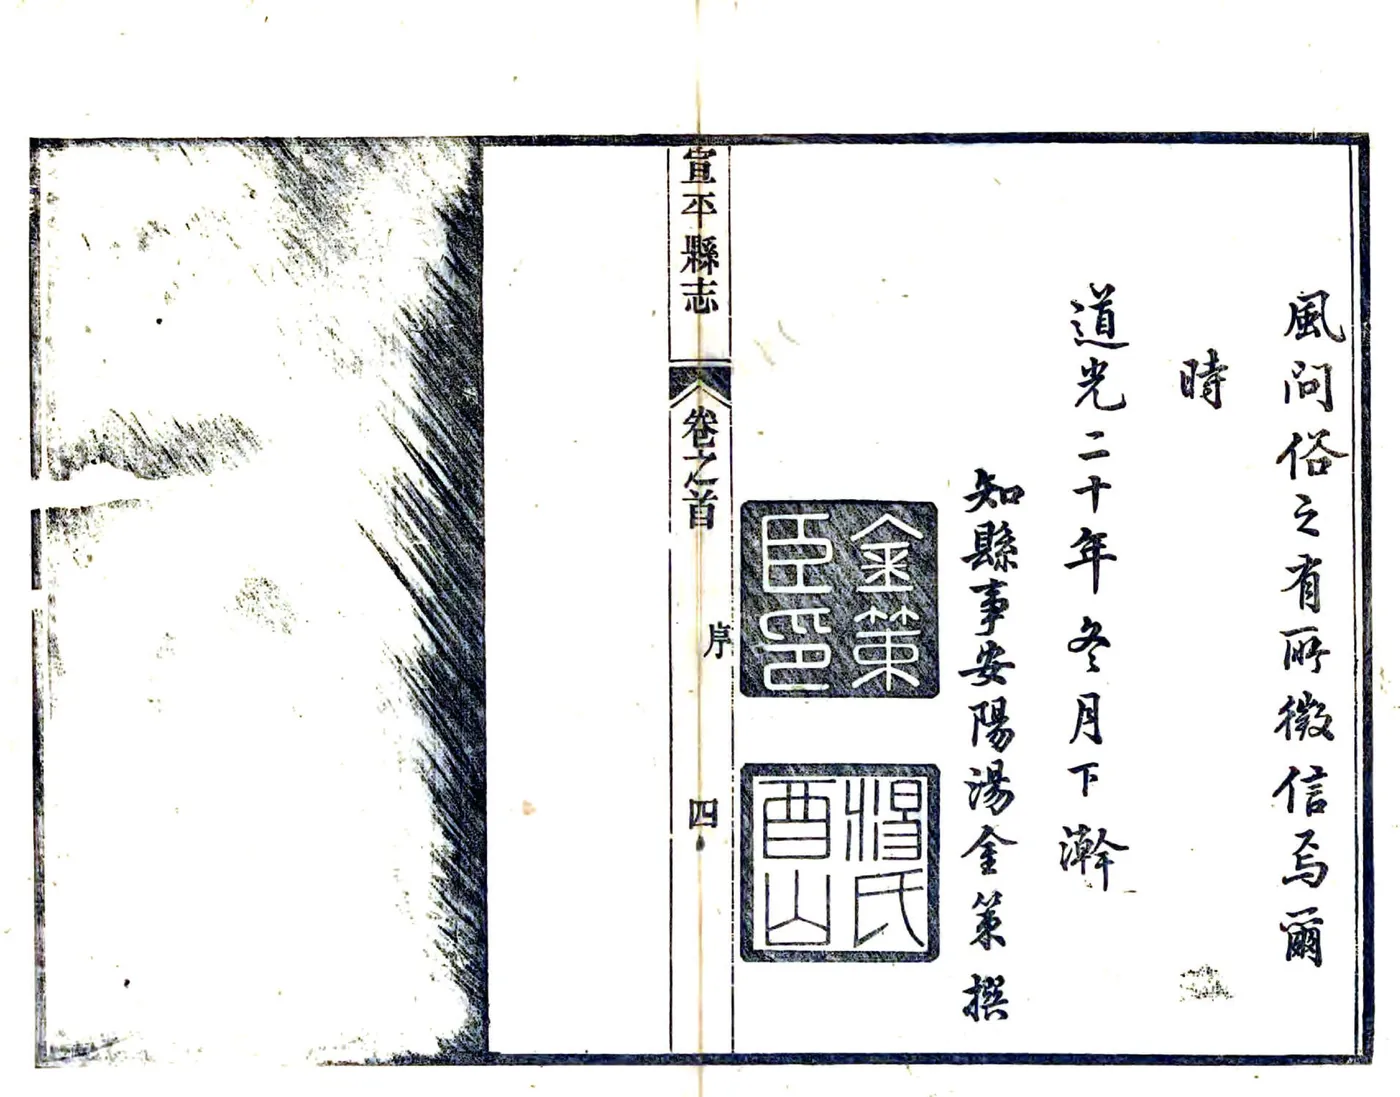 風問俗之有所徵信焉爾
時
道光二十年冬月下澣
知縣事安陽湯金策撰
金策
臣印
湯氏
酉山
宣平縣志
卷之首
序
四